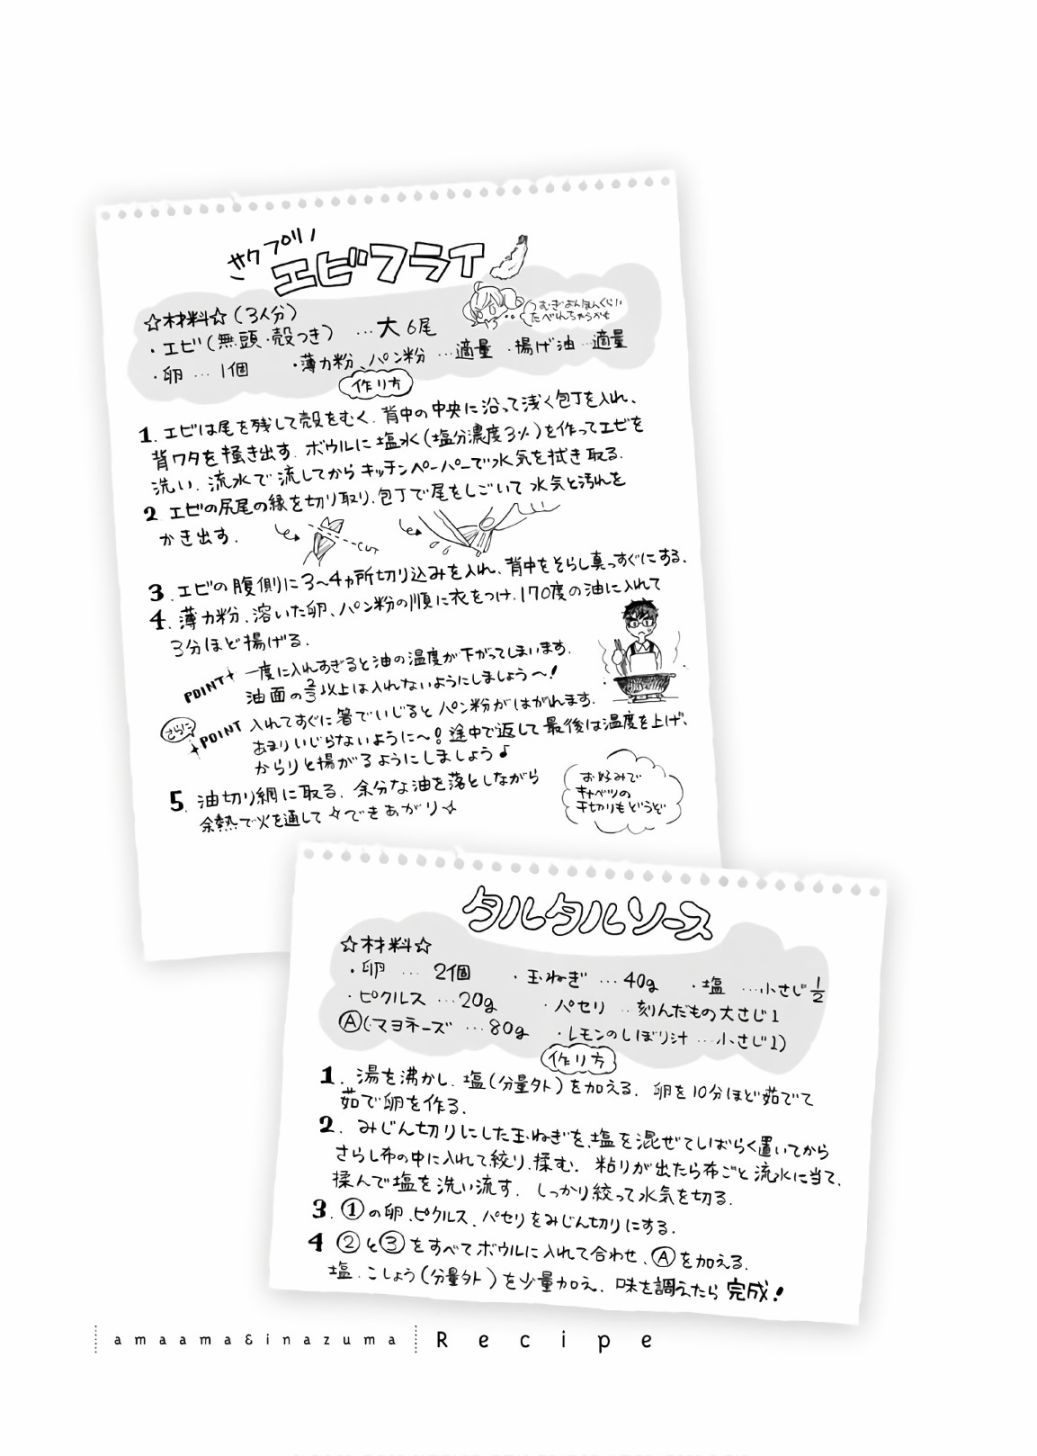 サクプリ!
エビフライ
☆材料☆(3人分)
・エビ(無頭・殻つき) …大6尾
・卵 … 1個 ・薄力粉、パン粉 …適量 ・揚げ油…適量
むぎ よんほんくらい
たべれちゃうかも
作り方
1. エビは尾を残して殻をむく。背中の中央に沿って浅く包丁を入れ、
背ワタを掻き出す。ボウルに塩水(塩分濃度3%)を作ってエビを
洗い、流水で流してからキッチンペーパーで水気を拭き取る。
2 エビの尻尾の縁を切り取り、包丁で尾をしごいて水気と汚れを
かき出す。
CUT
3. エビの腹側に3〜4ヵ所切り込みを入れ、背中をそらし真っすぐにする。
4. 薄力粉、溶いた卵、パン粉の順に衣をつけ、170度の油に入れて
3分ほど揚げる。
POINT 一度に入れすぎると油の温度が下がってしまいます。
油面の2/3以上は入れないようにしましょう〜!
さらに
POINT 入れてすぐに箸でいじるとパン粉がはがれます。
あまりいじらないように〜!途中で返して最後は温度を上げ、
からりと揚がるようにしましょう♪
5. 油切り網に取る。余分な油を落としながら
余熱で火を通して☆できあがり☆
お好みで
キャベツの
千切りもどうぞ
タルタルソース
☆材料☆
・卵 … 2個 ・玉ねぎ … 40g ・塩 …小さじ1/2
・ピクルス …20g ・パセリ …刻んだもの大さじ1
Ⓐ(・マヨネーズ …80g ・レモンのしぼり汁 …小さじ1)
作り方
1. 湯を沸かし、塩(分量外)を加える。卵を10分ほど茹でて
茹で卵を作る。
2. みじん切りにした玉ねぎを、塩を混ぜてしばらく置いてから
さらし布の中に入れて絞り、揉む。粘りが出たら布ごと流水に当て、
揉んで塩を洗い流す。しっかり絞って水気を切る。
3. ①の卵、ピクルス、パセリをみじん切りにする。
4 ②と③をすべてボウルに入れて合わせ、Ⓐを加える。
塩、こしょう(分量外)を少量加え、味を調えたら完成!
amaama&inazuma Recipe